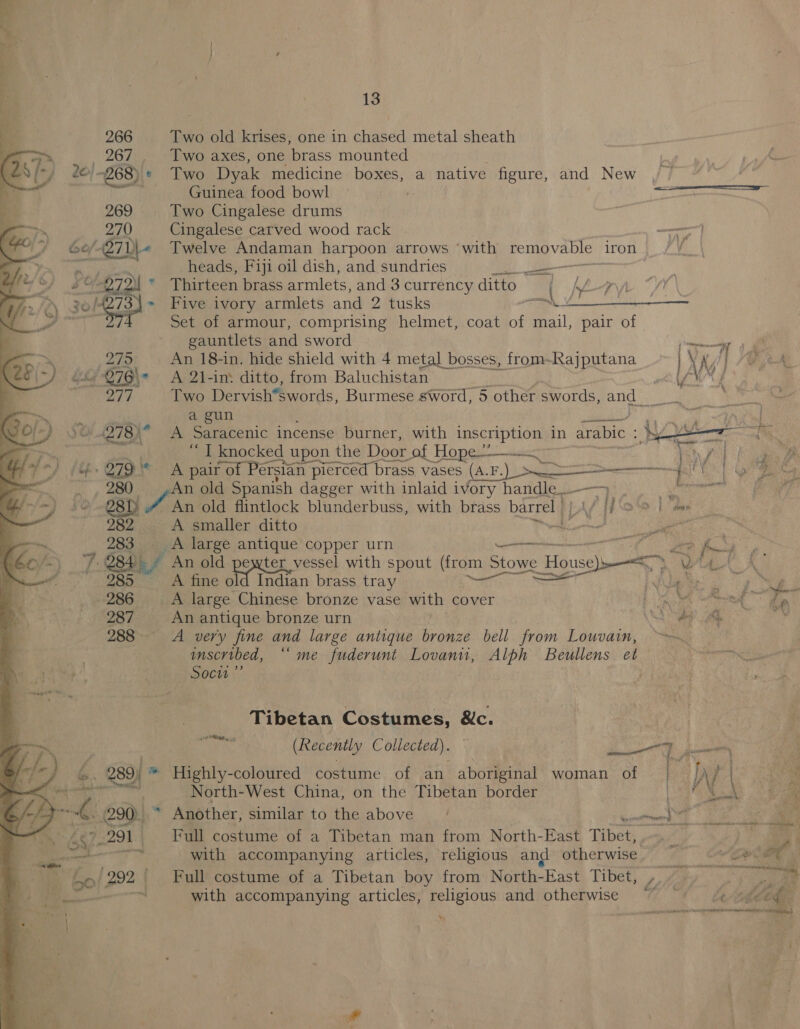 13
266 Two old krises, one in chased metal sheath
267 Two axes, one brass mounted
268 Two Dyak medicine boxes, a native figure, and New
Guinea food bowl
269 Two Cingalese drums
270 Cingalese carved wood rack
271 Twelve Andaman harpoon arrows with removable iron
heads, Fiji oil dish, and sundries
272 Thirteen brass armlets, and 3 currency ditto
273 Five ivory armlets and 2 tusks
274 Set of armour, comprising helmet, coat of mail, pair of
gauntlets and sword
275 An 18-in. hide shield with 4 metal bosses, from Rajputana
276 A 21-in. ditto, from Baluchistan
277 Two Dervish swords, Burmese sword, 5 other swords, and
a gun
278 A Saracenic incense burner, with inscription in arabic :
“I knocked upon the Door of Hope”
279 A pair of Persian pierced brass vases (A.F.)
280 An old Spanish dagger with inlaid ivory handle
281 An old flintlock blunderbuss, with brass barrel
282 A smaller ditto
283 A large antique copper urn
284 An old pewter vessel with spout (from Stowe House)
285 A fine old Indian brass tray
286 A large Chinese bronze vase with cover
287 An antique bronze urn
288 A very fine and large antique bronze bell from Louvain,
inscribed, “me fuderunt Lovanii, Alph Beullens et
Socii”
Tibetan Costumes, &c.
(Recently Collected).
289 Highly-coloured costume of an aboriginal woman of
North-West China, on the Tibetan border
290 Another, similar to the above
291 Full costume of a Tibetan man from North-East Tibet,
with accompanying articles, religious and otherwise
292 Full costume of a Tibetan boy from North-East Tibet,
with accompanying articles, religious and otherwise